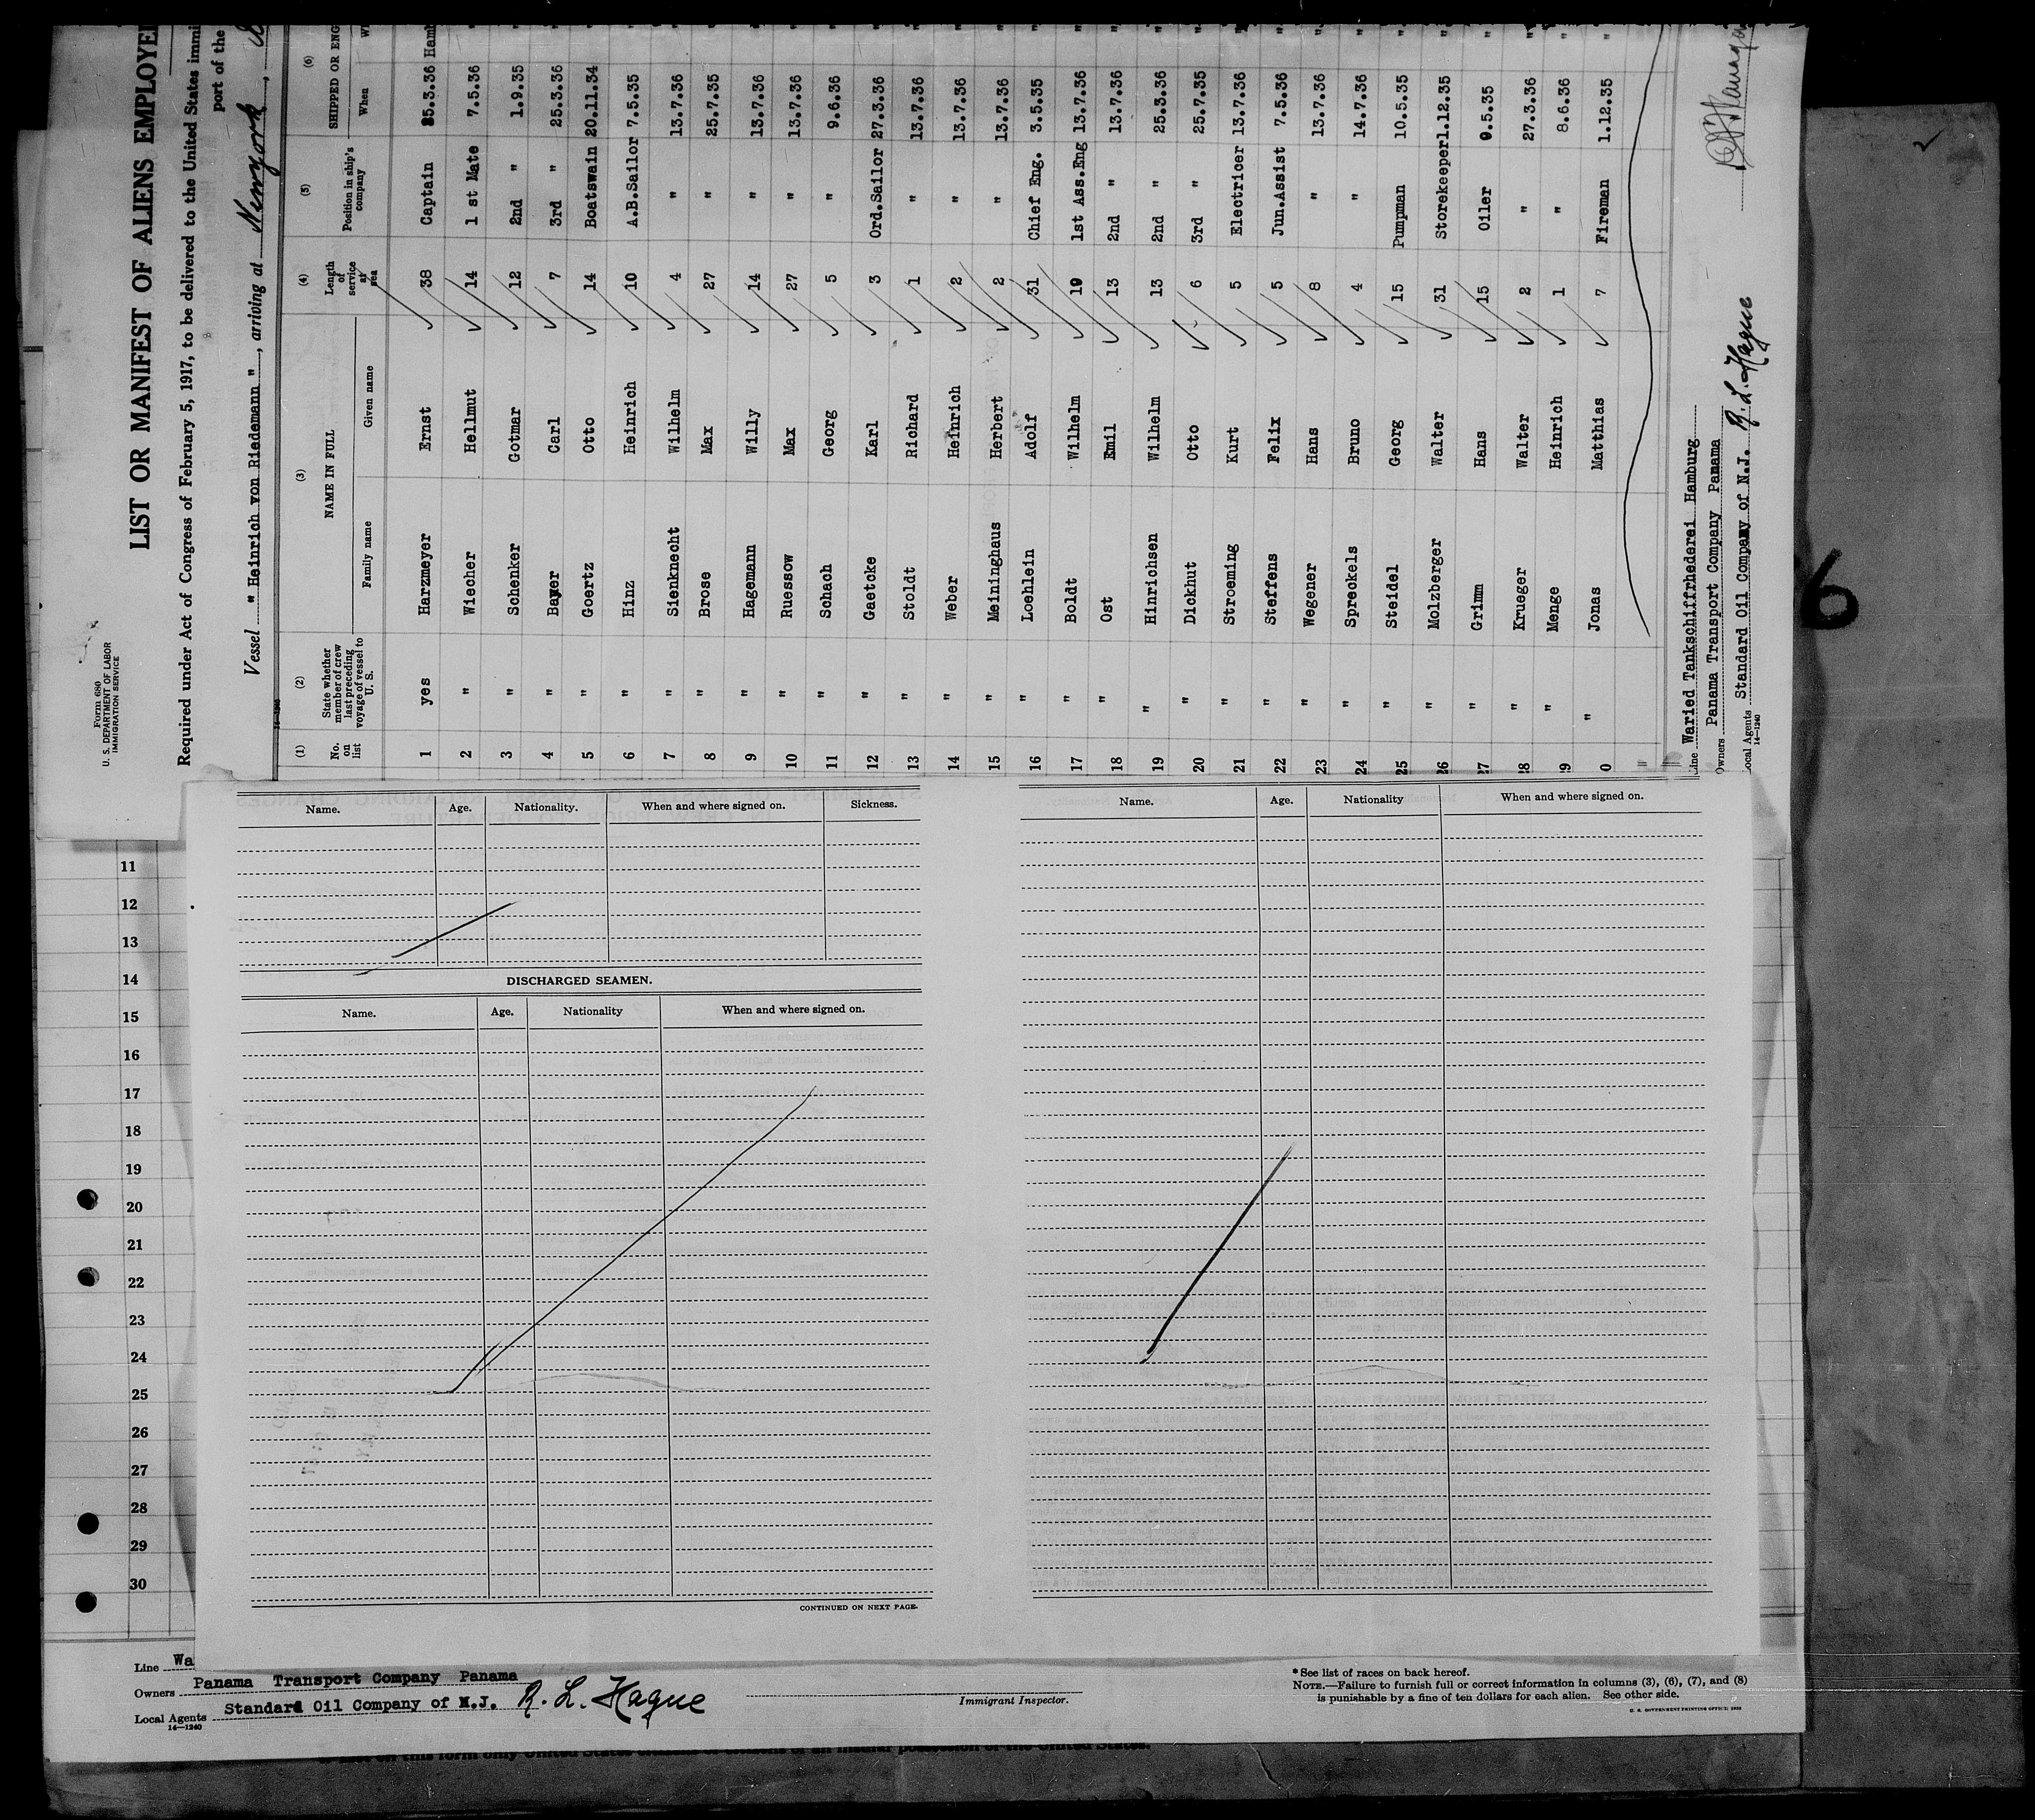 Form 680
U. S. DEPARTMENT OF LABOR
IMMIGRATION SERVICE
LIST OR MANIFEST OF ALIENS EMPLOYE
Required under Act of Congress of February 5, 1917, to be delivered to the United States immi
port of the
Vessel " Heinrich von Riedemann ", arriving at Newyork,
(1) (2) (3) (4) (5) (6)
No. on list State whether member of crew last preceding voyage of vessel to U. S. NAME IN FULL Length of service at sea Position in ship's company SHIPPED OR ENG
Family name Given name When
1 yes Harzmeyer Ernst 38 Captain 25.3.36 Hamb
2 " Wiecher Hellmut 14 1 st Mate 7.5.36 "
3 " Schenker Gotmar 12 2nd " 1.9.35 "
4 " Bayer Carl 7 3rd " 25.3.36 "
5 " Goertz Otto 14 Boatswain 20.11.34 "
6 " Hinz Heinrich 10 A.B.Sailor 7.5.35 "
7 " Sienknecht Wilhelm 4 " 13.7.36 "
8 " Brose Max 27 " 25.7.35 "
9 " Hagemann Willy 14 " 13.7.36 "
10 " Ruessow Max 27 " 13.7.36 "
11 " Schach Georg 5 " 9.6.36 "
12 " Gaetcke Karl 3 Ord.Sailor 27.3.36 "
13 " Stoldt Richard 1 " 13.7.36 "
14 " Weber Heinrich 2 " 13.7.36 "
15 " Meininghaus Herbert 2 " 13.7.36 "
16 " Loehlein Adolf 31 Chief Eng. 3.5.35 "
17 " Boldt Wilhelm 19 1st Ass.Eng 13.7.36 "
18 " Ost Emil 13 2nd " 13.7.36 "
19 " Hinrichsen Wilhelm 13 2nd " 25.3.36 "
20 " Dickhut Otto 6 3rd " 25.7.35 "
21 " Stroeming Kurt 5 Electricer 13.7.36 "
22 " Steffens Felix 5 Jun.Assist 7.5.36 "
23 " Wegener Hans 8 " 13.7.36 "
24 " Spreckels Bruno 4 " 14.7.36 "
25 " Steidel Georg 15 Pumpman 10.5.35 "
26 " Molzberger Walter 31 Storekeeper 1.12.35 "
27 " Grimm Hans 15 Oiler 9.5.35 "
28 " Krueger Walter 2 " 27.3.36 "
9 " Menge Heinrich 1 " 8.6.36 "
0 " Jonas Matthias 7 Fireman 1.12.35 "
Line Waried Tankschiffrhederei Hamburg
Owners Panama Transport Company Panama
Local Agents Standard Oil Company of N.J. R. L. Hague
14—1240
6
Name. Age. Nationality. When and where signed on. Sickness.
DISCHARGED SEAMEN.
Name. Age. Nationality When and where signed on.
CONTINUED ON NEXT PAGE.
Name. Age. Nationality When and where signed on.
11
12
13
14
15
16
17
18
19
20
21
22
23
24
25
26
27
28
29
30
Line Wa
Owners Panama Transport Company Panama
Local Agents Standard Oil Company of N.J. R. L. Hague
14—1240
Immigrant Inspector.
* See list of races on back hereof.
NOTE.—Failure to furnish full or correct information in columns (3), (6), (7), and (8)
is punishable by a fine of ten dollars for each alien. See other side.